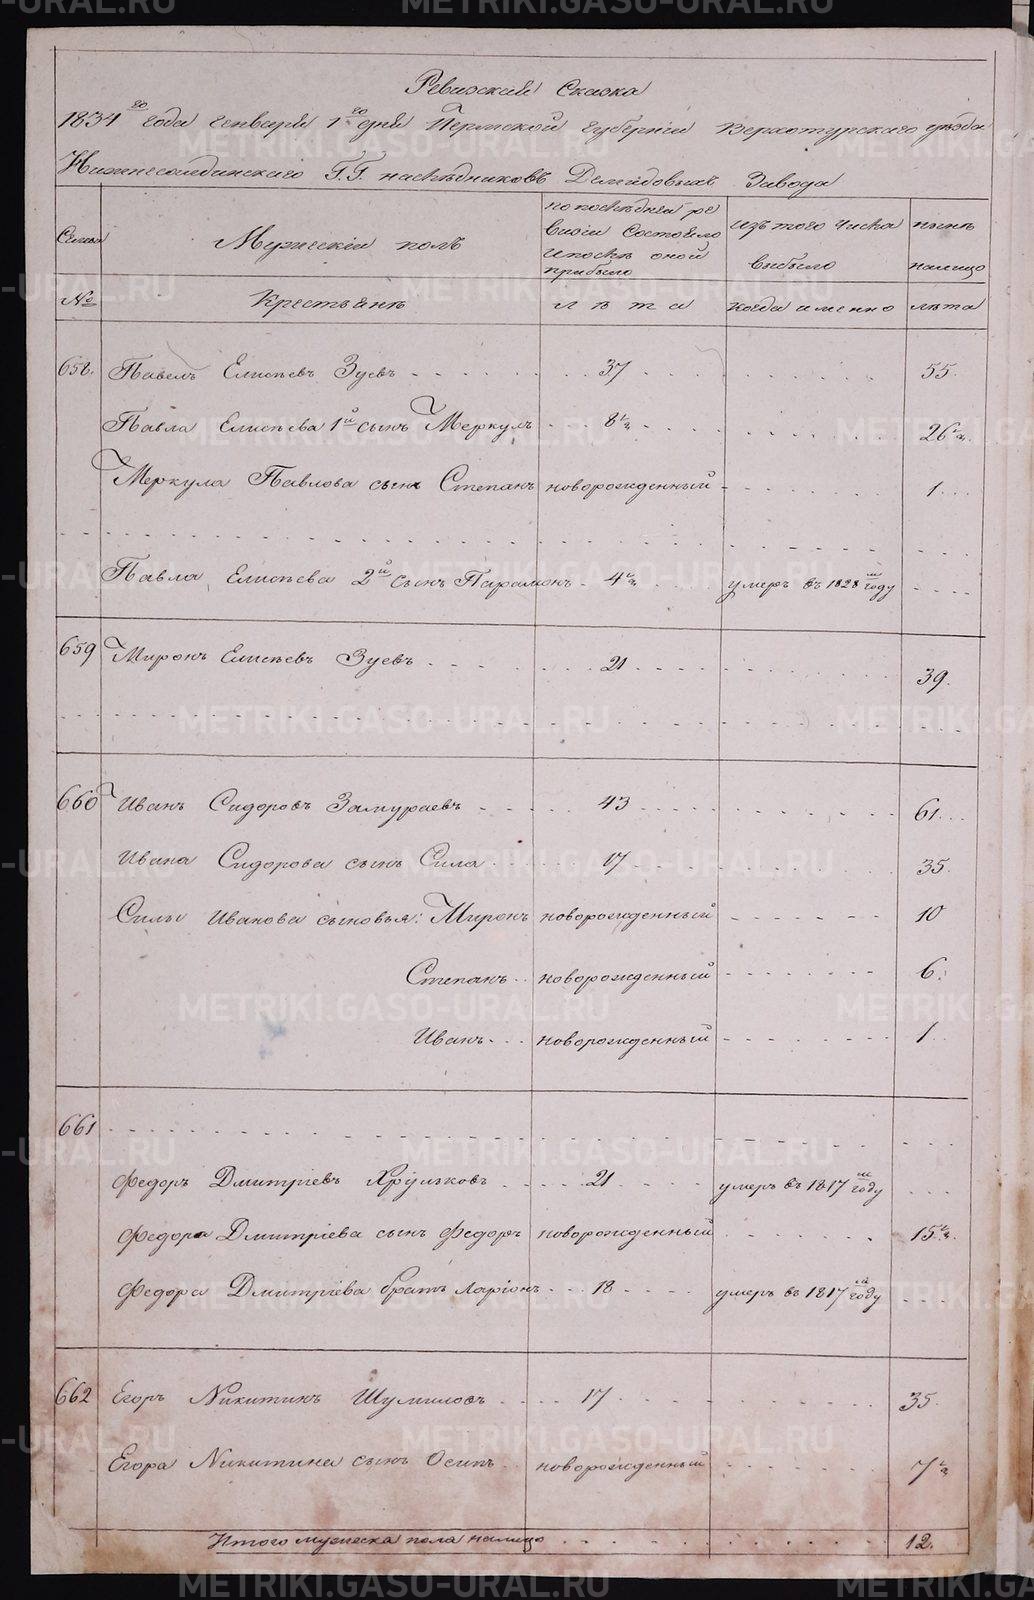 Ревизская Сказка
1834го года генваря 1го дня Пермской губернии Верхотурскаго уѣзда
Нижнесалдинскаго Г.Г. наслѣдниковъ Демидовыхъ Завода
Семьи Мужескій полъ по послѣдней ревизіи состояло и послѣ оной прибыло изъ того числа выбыло нынѣ налицо
№ Крестьянѣ лѣта когда именно лѣта
658. Павелъ Елисѣевъ Зуевъ 37 55.
Павла Елисѣева 1й сынъ Меркулъ 8½ 26½.
Меркула Павлова сынъ Степанъ новорожденный 1
Павла Елисѣева 2й сынъ Парамонъ 4½ умеръ въ 1828м году
659 Миронъ Елисѣевъ Зуевъ 21 39.
660 Иванъ Сидоровъ Замураевъ 43 61
Ивана Сидорова сынъ Сила 17 35.
Силы Иванова сыновья: Миронъ новорожденный 10
Степанъ новорожденный 6.
Иванъ новорожденный 1
661
Федоръ Дмитріевъ Хрулковъ 21 умеръ въ 1817м году
Федора Дмитріева сынъ Федоръ новорожденный 15½.
Федора Дмитріева братъ Ларіонъ 18 умеръ въ 1817м году
662 Егоръ Никитинъ Шумиловъ 17 35.
Егора Никитина сынъ Осипъ новорожденный 7½
Итого мужеска пола налицо 12.
METRIKI.GASO-URAL.RU